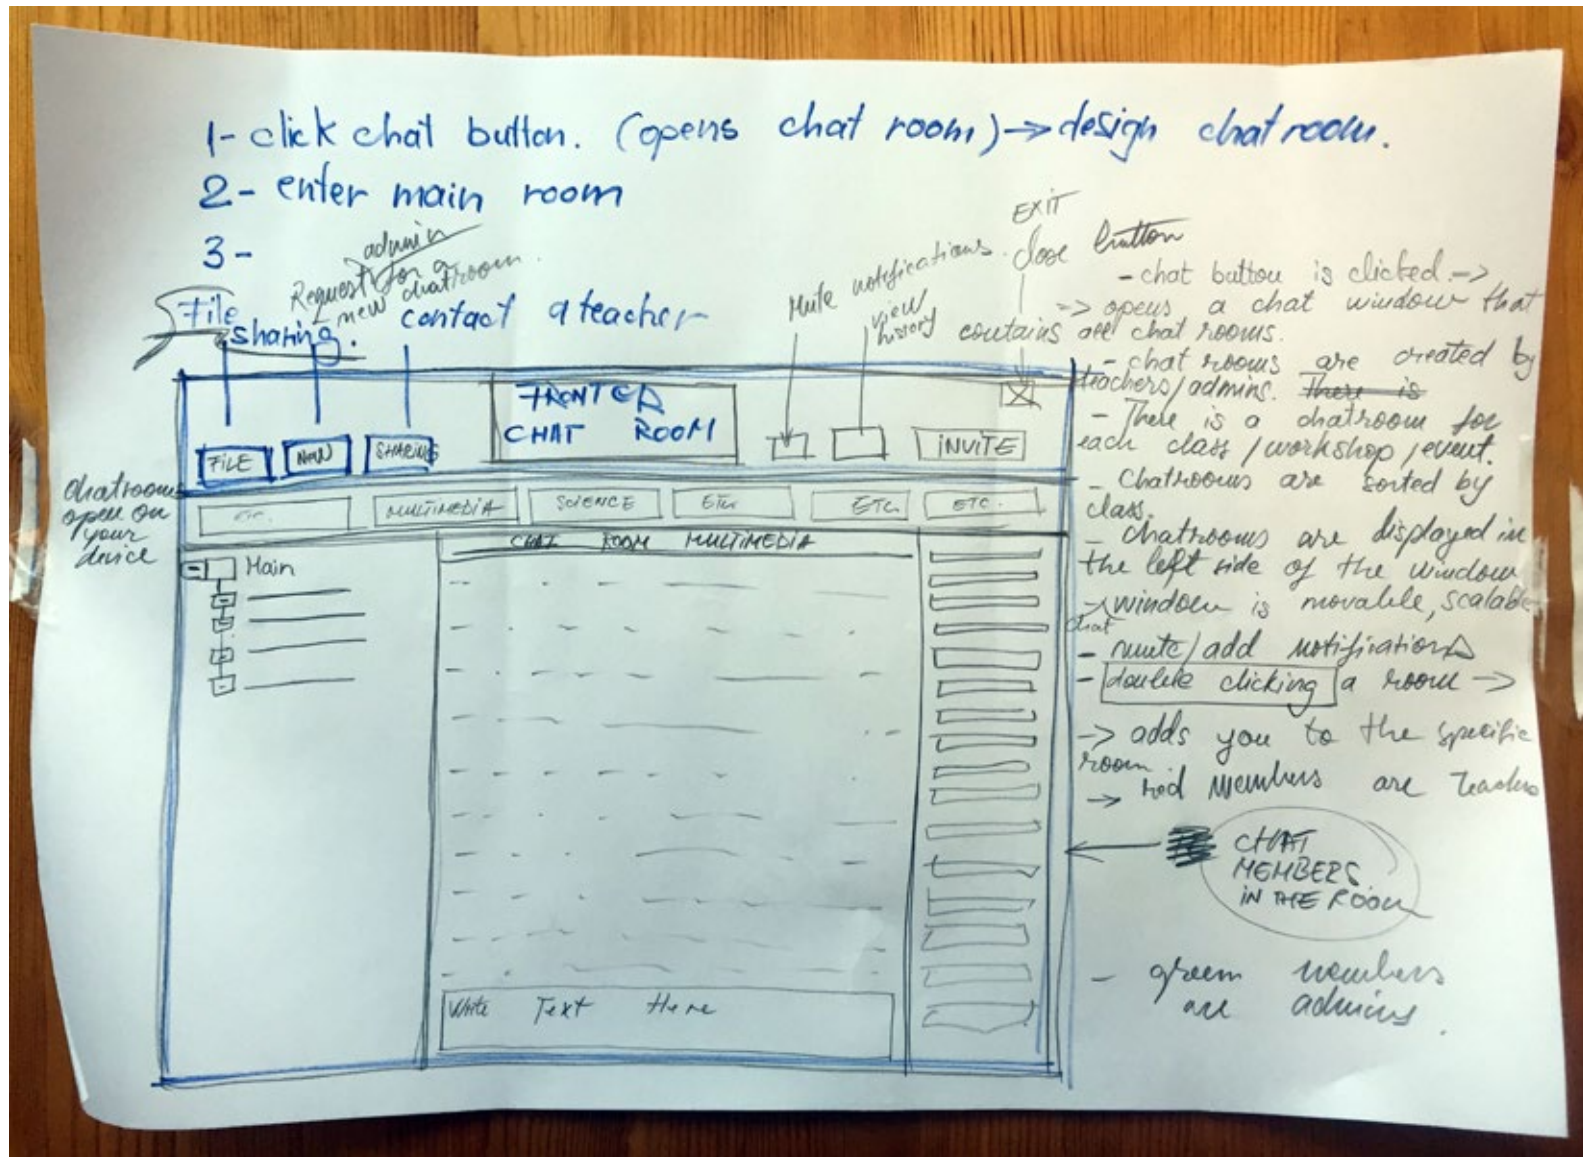 1- click chat button. (opens chat room) -> design chat room.
2- enter main room
3-
admin
Request for a
new chatroom.
File
sharing.
contact a teacher
Mute notifications.
view
history
EXIT
close button
FRONTER
CHAT ROOM
FILE
SHARING
INVITE
chatrooms
open on
your
device
ETC.
MULTIMEDIA
SCIENCE
ETC
ETC.
ETC.
CHAT ROOM MULTIMEDIA
Main
Write Text Here
- chat button is clicked. ->
-> opens a chat window that
contains all chat rooms.
- chat rooms are created by
teachers/admins. There is
- There is a chatroom for
each class / workshop / event.
- Chatrooms are sorted by
class.
- chatrooms are displayed in
the left side of the window
- window is movable, scalable
chat
- mute/add notifications
- double clicking a room ->
-> adds you to the specific
room.
-> red members are teachers
CHAT
MEMBERS
IN THE ROOM
- green members
are admins.